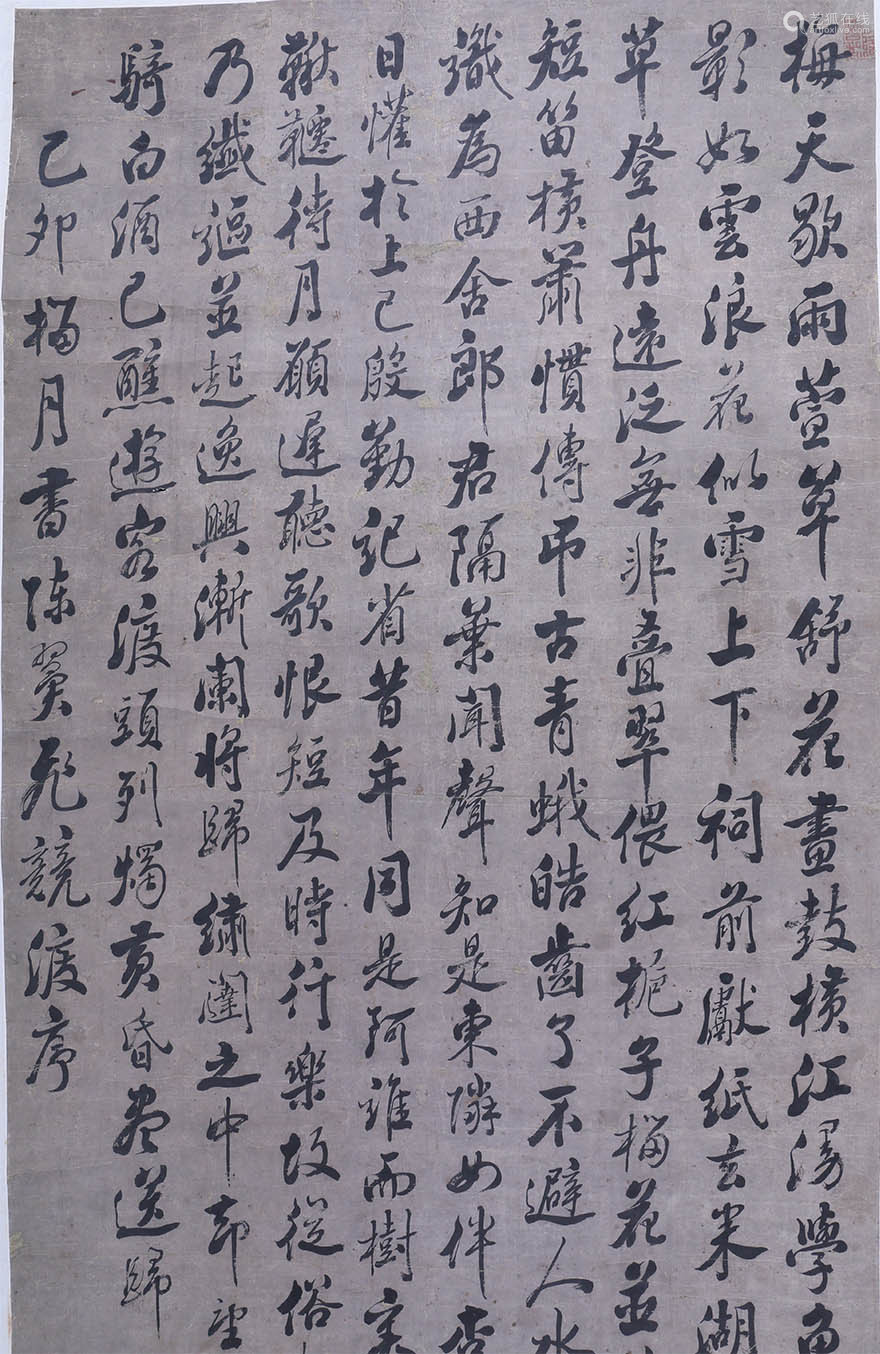 梅天歇雨萱草舒花畫鼓橫江湯學魚
影如雲浪花似雪上下祠前獻紙玄米湖
草登舟遠泛無非疊翠偎紅梔子榴花並
短笛橫簫慣傳弔古青蛾皓齒了不避人水
識為西舍郎君隔葉聞聲知是東隣女伴杏
日懽於上巳殷勤記省昔年同是阿誰而樹
鞦韆待月願遲聽歌恨短及時行樂故從俗
乃纖謳並起逸興漸闌將歸繡闥之中却望
騎白酒已醺遊客渡頭列燭黃昏盡送歸
己卯榴月書陳翼飛競渡序
艺狐在线